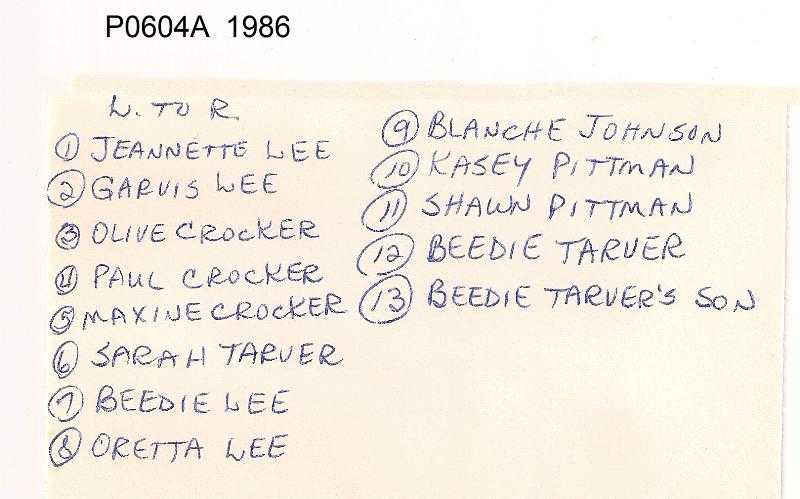 P0604A 1986
L. TO R.
1 JEANNETTE LEE
2 GARVIS LEE
3 OLIVE CROCKER
4 PAUL CROCKER
5 MAXINE CROCKER
6 SARAH TARVER
7 BEEDIE LEE
8 ORETTA LEE
9 BLANCHE JOHNSON
10 KASEY PITTMAN
11 SHAWN PITTMAN
12 BEEDIE TARVER
13 BEEDIE TARVER'S SON